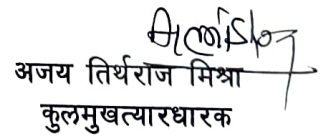 अजय तिर्थराज मिश्रा
कुलमुखत्यारधारक